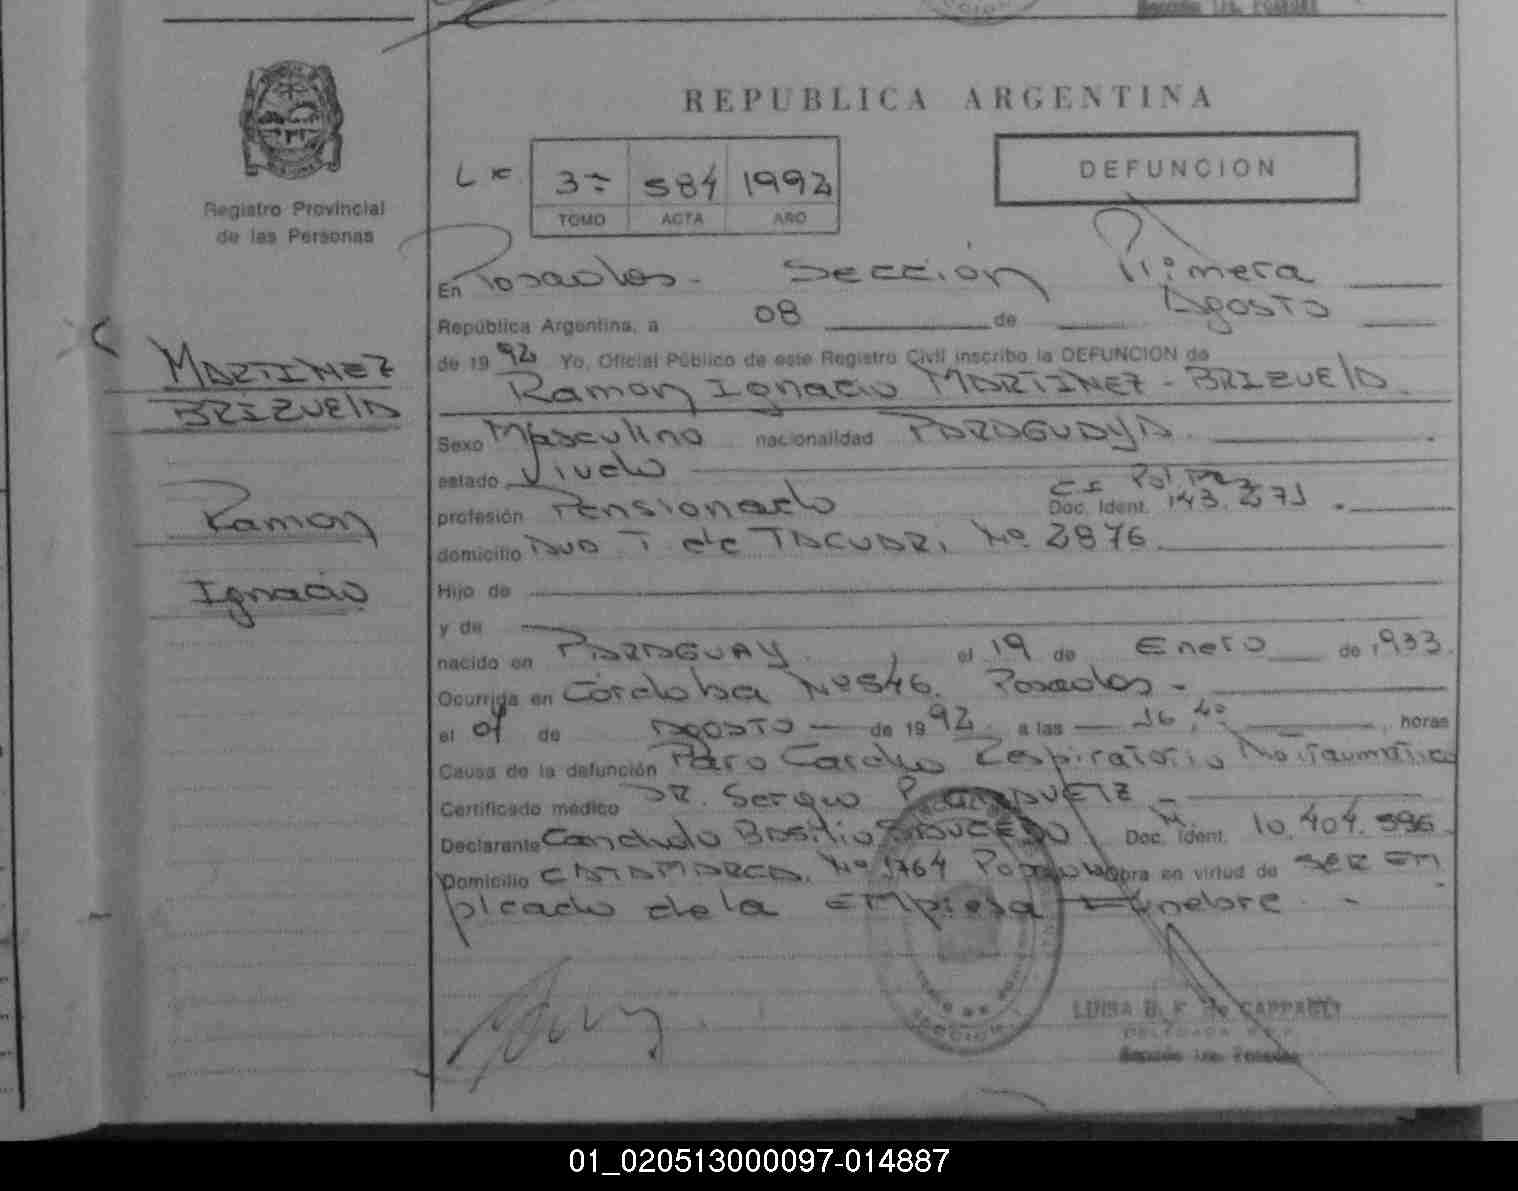 REPUBLICA ARGENTINA
Registro Provincial
de las Personas
3= 584 1992
TOMO ACTA AÑO
DEFUNCION
En Posadas - Sección Primera
República Argentina, a 08 de Agosto
de 1992 Yo, Oficial Público de este Registro Civil inscribo la DEFUNCION de
Ramon Ignacio MARTINEZ - BRIZUELA
Sexo Masculino nacionalidad PARAGUAYA
estado Viudo
profesión Pensionado C.I. Pol. Doc. Ident. 143.271
domicilio AVDA T. de TACUARI Nº 2876
Hijo de
y de
nacido en PARAGUAY el 19 de Enero de 1933
Ocurrida en Córdoba Nº 546. Posadas -
el 07 de AGOSTO de 1992 a las 16,40 horas
Causa de la defunción Paro Cardio Respiratorio No Traumático
Certificado médico DR. Sergio P.
Declarante Candido Basilio SAUCEDO Doc. Ident. 10.404.596
Domicilio CATAMARCA Nº 1764 Posadas obra en virtud de SER EM
pleado de la EMpresa Fúnebre
MARTINEZ
BRIZUELA
Ramon
Ignacio
LUISA B. F. de CAPPAGLY
DELEGADA
Sección 1ra. Posadas
01_020513000097-014887